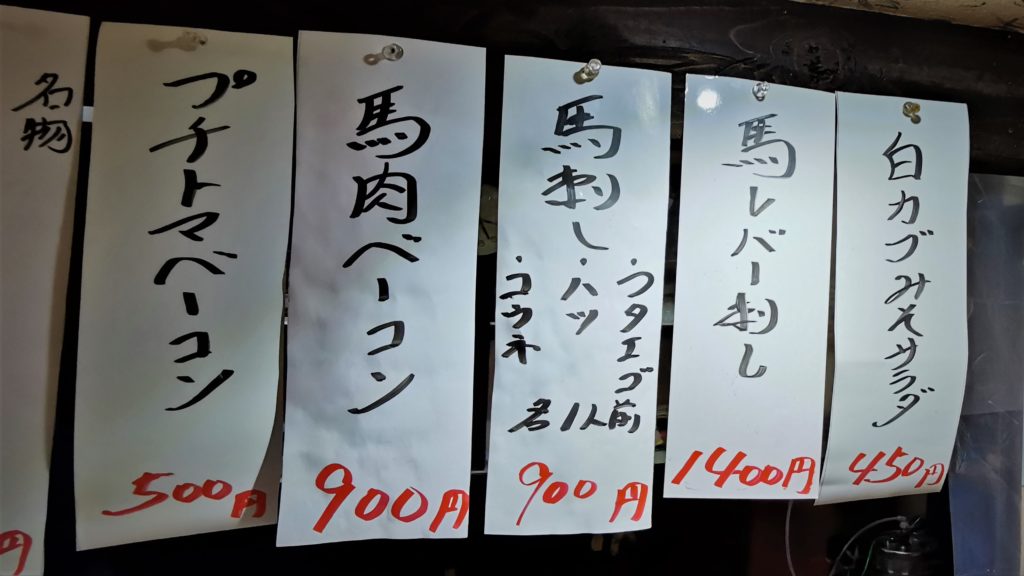 白カブみそサラダ
450円
馬レバー刺し
1400円
馬刺し
・フタエゴ
・ハツ
・コウネ
各1人前
900円
馬肉ベーコン
900円
プチトマベーコン
500円
名物
円